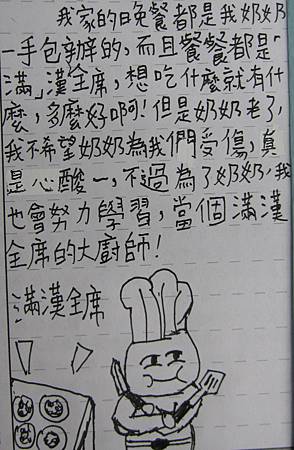 我家的晚餐都是我奶奶
一手包辦的，而且餐餐都是「
滿」漢全席，想吃什麼就有什
麼，多麼好啊！但是奶奶老了，
我不希望奶奶為我們受傷，真
是心酸一，不過為了奶奶，我
也會努力學習，當個滿漢
全席的大廚師！
滿漢全席